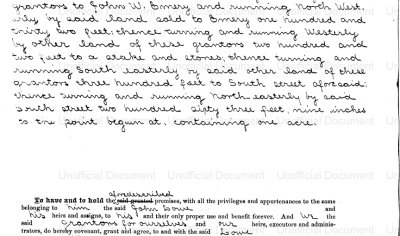 grantors to John W. Emery and running North West-
erly by said land sold to Emery one hundred and
thirty two feet; thence turning and running Westerly
by other land of these grantors two hundred and
two feet to a stake and stones, thence turning and
running South easterly by said other land of these
grantors three hundred feet to South street aforesaid:
thence turning and running North easterly by said
South street two hundred sixty three feet, nine inches
to the point begun at, containing one acre.
Unofficial Document Unofficial Document Unofficial Document Unofficial Document
aforedescribed
To have and to hold the said granted premises, with all the privileges and appurtenances to the same
belonging to him the said John Lowe and
his heirs and assigns, to his and their only proper use and benefit forever. And we the
said grantors for ourselves and our heirs, executors and adminis-
trators, do hereby covenant, grant and agree, to and with the said Lowe